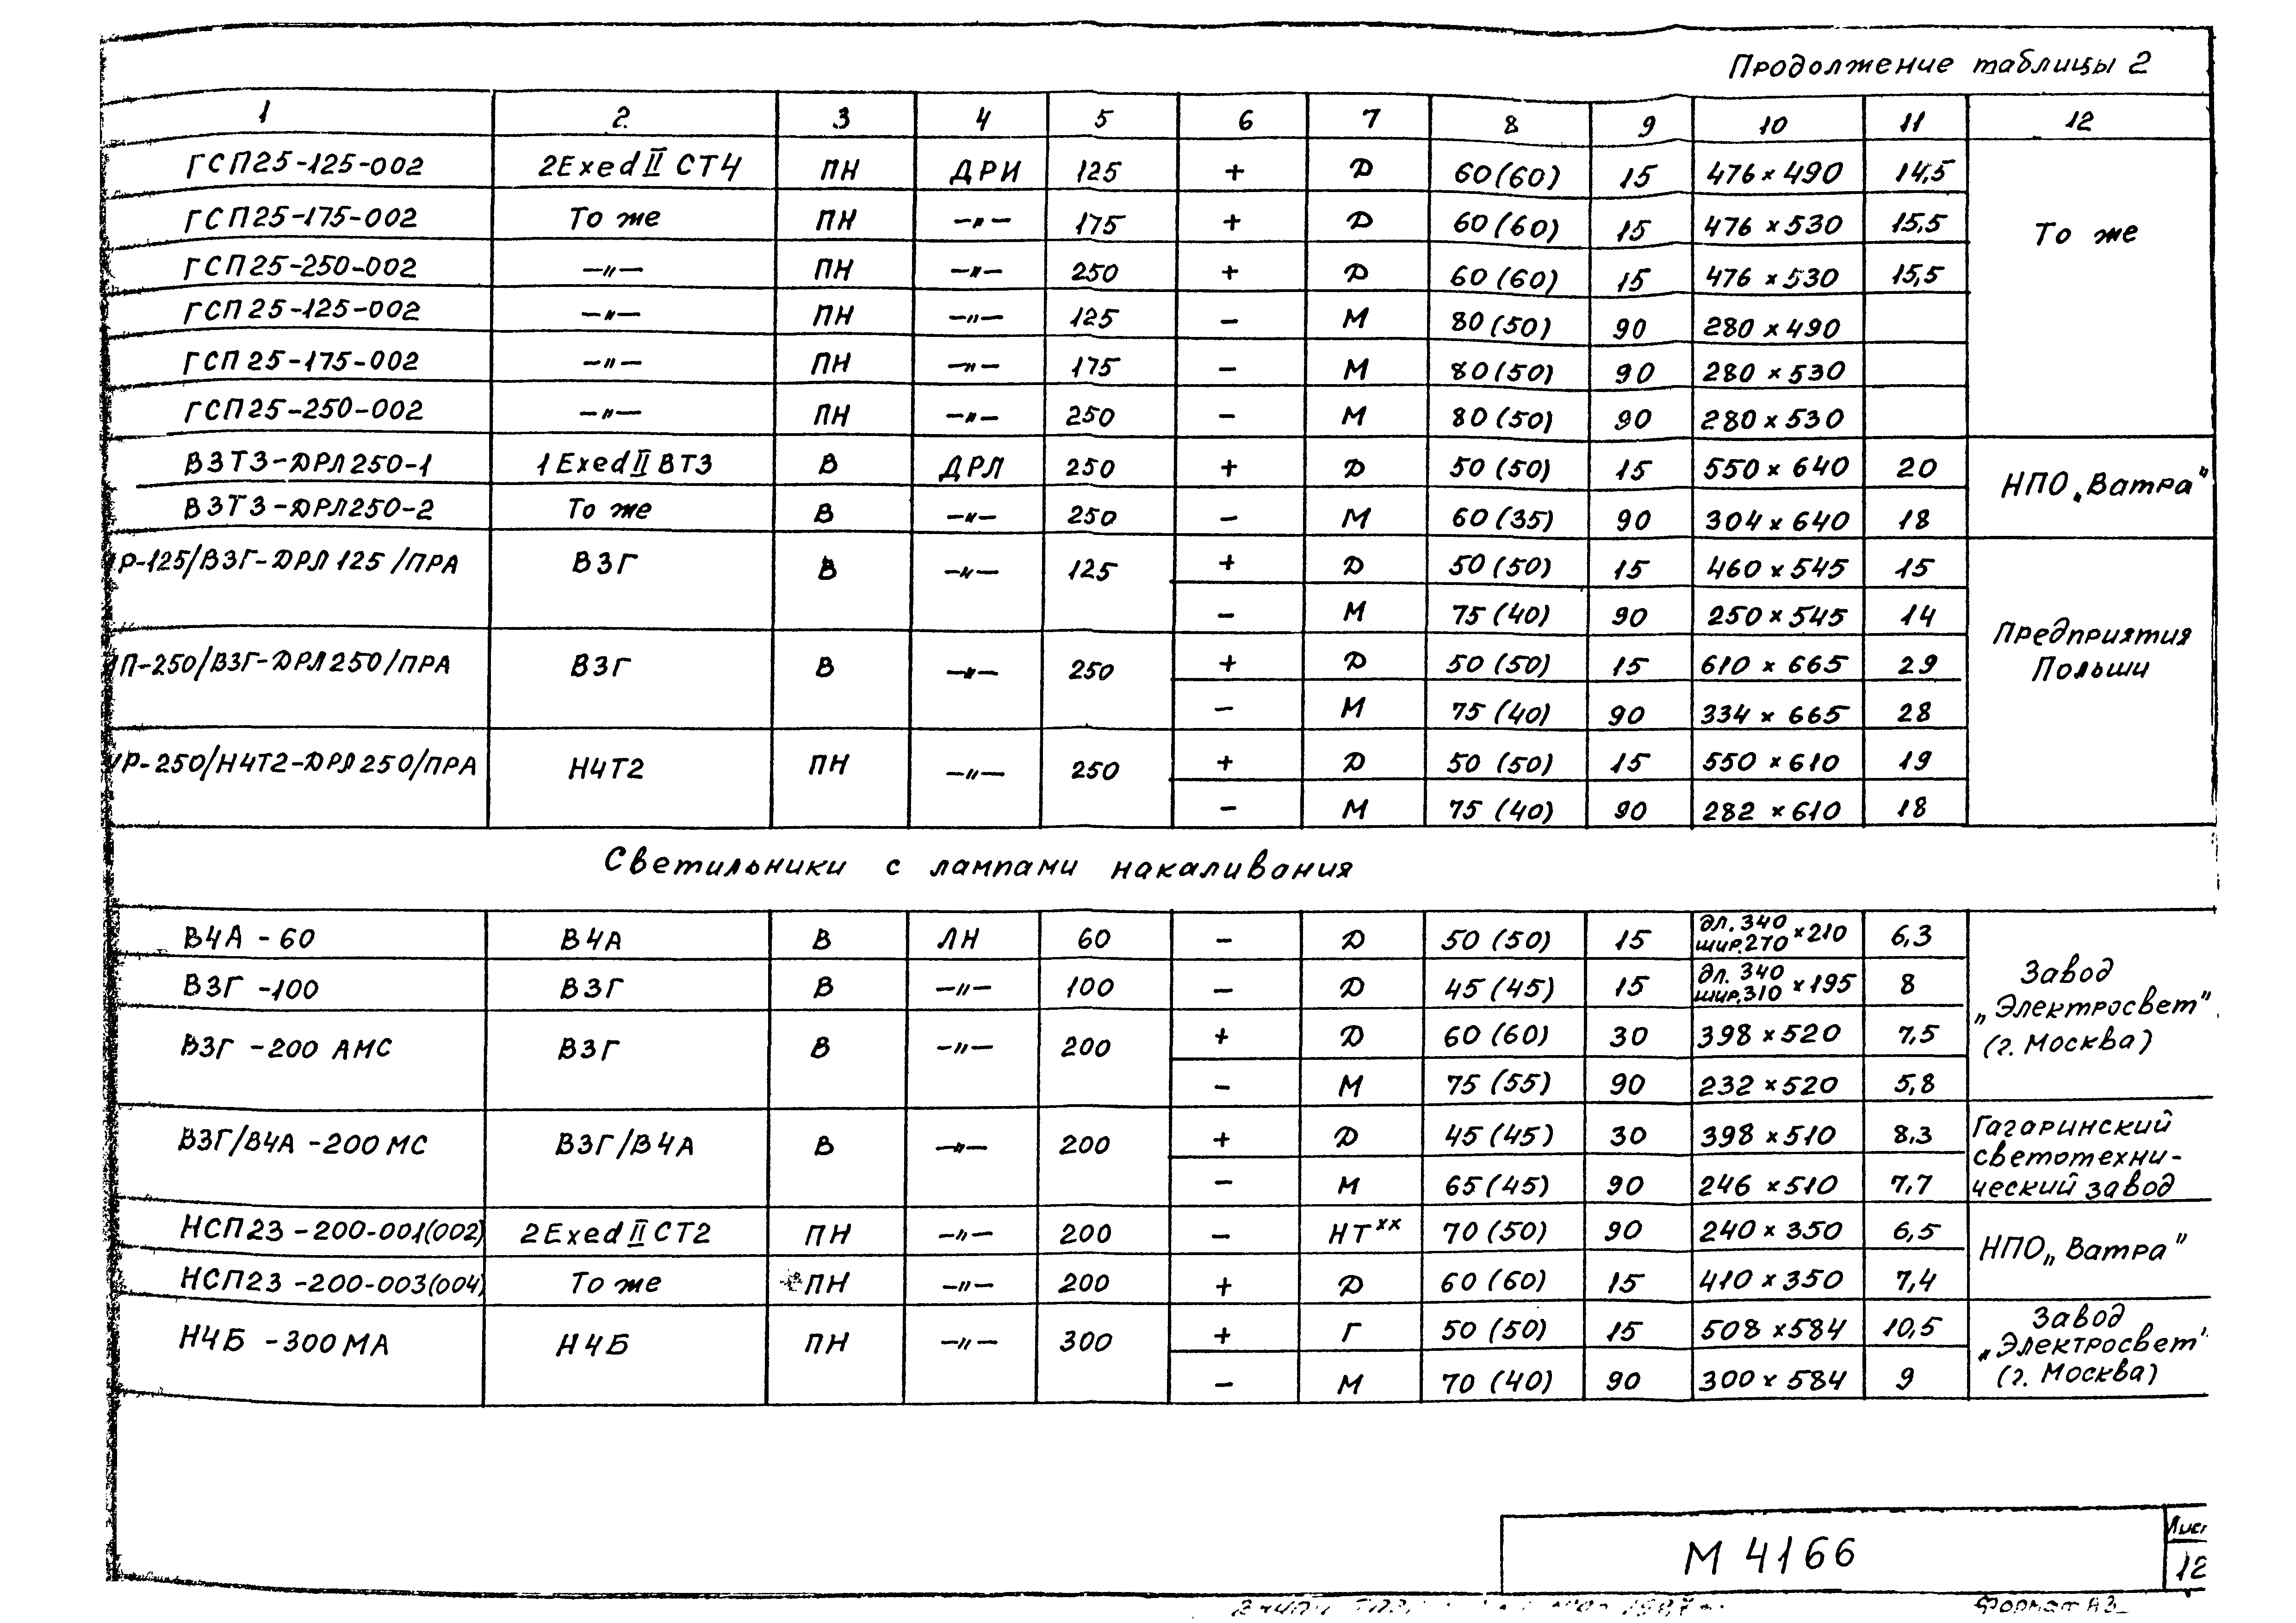 Продолжение таблицы 2
1 2 3 4 5 6 7 8 9 10 11 12
ГСП25-125-002 2ExedⅡСТ4 ПН ДРИ 125 + Д 60(60) 15 476×490 14,5
ГСП25-175-002 То же ПН —"— 175 + Д 60(60) 15 476×530 15,5 То же
ГСП25-250-002 —"— ПН —"— 250 + Д 60(60) 15 476×530 15,5
ГСП25-125-002 —"— ПН —"— 125 - М 80(50) 90 280×490
ГСП25-175-002 —"— ПН —"— 175 - М 80(50) 90 280×530
ГСП25-250-002 —"— ПН —"— 250 - М 80(50) 90 280×530
ВЗТ3-ДРЛ250-1 1ExedⅡВТ3 В ДРЛ 250 + Д 50(50) 15 550×640 20 НПО „Ватра"
ВЗТ3-ДРЛ250-2 То же В —"— 250 - М 60(35) 90 304×640 18
Р-125/ВЗГ-ДРЛ125/ПРА ВЗГ В —"— 125 + Д 50(50) 15 460×545 15
- М 75(40) 90 250×545 14 Предприятия
П-250/ВЗГ-ДРЛ250/ПРА ВЗГ В —"— 250 + Д 50(50) 15 610×665 29 Польши
- М 75(40) 90 334×665 28
Р-250/Н4Т2-ДРЛ250/ПРА Н4Т2 ПН —"— 250 + Д 50(50) 15 550×610 19
- М 75(40) 90 282×610 18
Светильники с лампами накаливания
В4А-60 В4А В ЛН 60 - Д 50(50) 15 дл.340 шир.270 ×210 6,3
ВЗГ-100 ВЗГ В —"— 100 - Д 45(45) 15 дл.340 шир.310 ×195 8 Завод
ВЗГ-200 АМС ВЗГ В —"— 200 + Д 60(60) 30 398×520 7,5 „Электросвет"
- М 75(55) 90 232×520 5,8 (г. Москва)
ВЗГ/В4А-200МС ВЗГ/В4А В —"— 200 + Д 45(45) 30 398×510 8,3 Гагаринский
светотехни-
- М 65(45) 90 246×510 7,7 ческий завод
НСП23-200-001(002) 2ExedⅡСТ2 ПН —"— 200 - НТˣˣ 70(50) 90 240×350 6,5 НПО „Ватра"
НСП23-200-003(004) То же ПН —"— 200 + Д 60(60) 15 410×350 7,4
Н4Б-300МА Н4Б ПН —"— 300 + Г 50(50) 15 508×584 10,5 Завод
„Электросвет"
- М 70(40) 90 300×584 9 (г. Москва)
М 4166
Лист
12
Формат А3